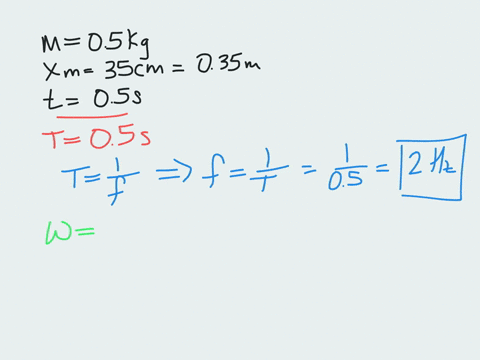 M = 0.5kg
Xm = 35cm = 0.35m
t = 0.5s
T = 0.5s
T = 1/f ⇒ f = 1/T = 1/0.5 = 2 Hz
W =